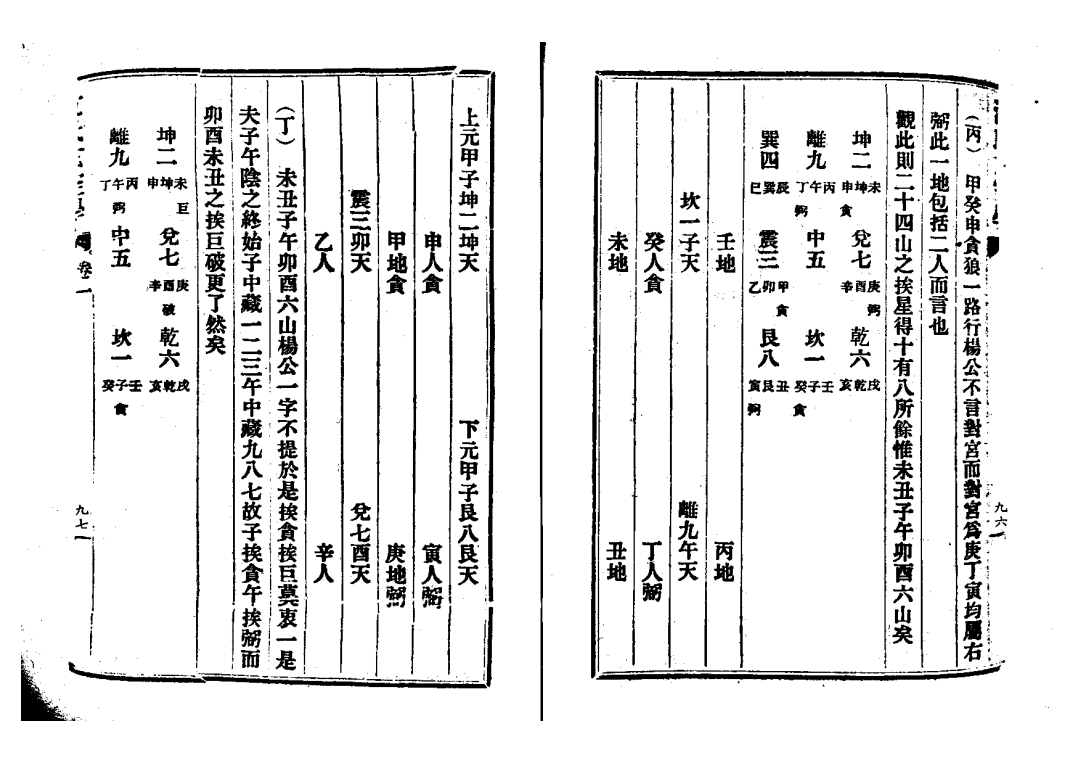 （丙） 甲癸申貪狼一路行楊公不言對宮而對宮爲庚丁寅均屬右
弼此一地包括二人而言也
觀此則二十四山之挨星得十有八所餘惟未丑子午卯酉六山矣
坤二 未坤申 貪 兌七 庚酉辛 弼 乾六 戌乾亥
離九 丙午丁 弼 中五 坎一 壬子癸 貪
巽四 辰巽巳 震三 甲卯乙 貪 艮八 丑艮寅 弼
壬地 丙地
坎一子天 離九午天
癸人貪 丁人弼
未地 丑地
九六
上元甲子坤二坤天 下元甲子艮八艮天
申人貪 寅人弼
甲地貪 庚地弼
震三卯天 兌七酉天
乙人 辛人
（丁） 未丑子午卯酉六山楊公一字不提於是挨貪挨巨莫衷一是
夫子午陰之終始子中藏一二三午中藏九八七故子挨貪午挨弼而
卯酉未丑之挨巨破更了然矣
坤二 未坤申 巨 兌七 庚酉辛 破 乾六 戌乾亥
離九 丙午丁 弼 中五 坎一 壬子癸 貪
卷二
九七